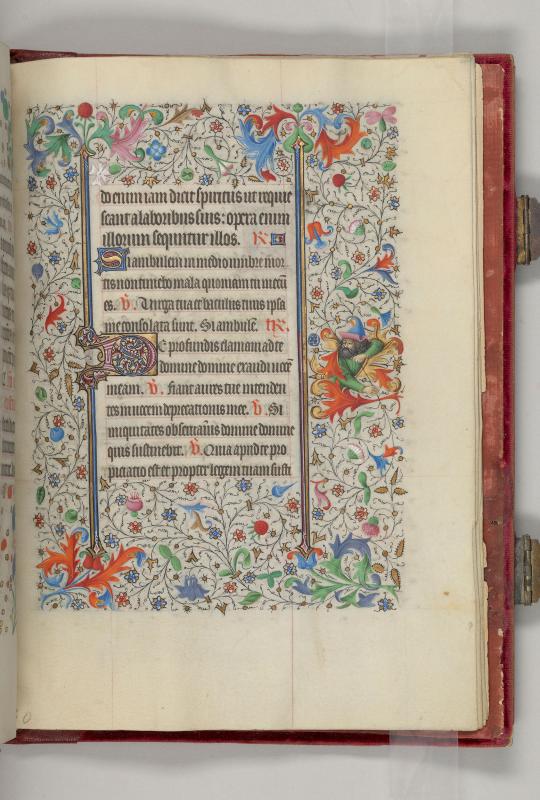 do enim iam dicit spiritus ut requie
scant a laboribus suis: opera enim
illorum sequntur illos. R
Si ambulem in medio umbre mor
tis non timebo mala quoniam tu mecū
es. V. Virga tua et baculus tuus ipsa
me consolata sunt. Si ambulē. tr.
De profundis clamavi ad te
domine domine exaudi vocē
meam. V. Fiant aures tue intenden
tes in vocem deprecationis mee. V. Si
iniquitates observaveris domine domine
quis sustinebit. V. Quia apud te pro
piciatio est et propter legem tuam susti